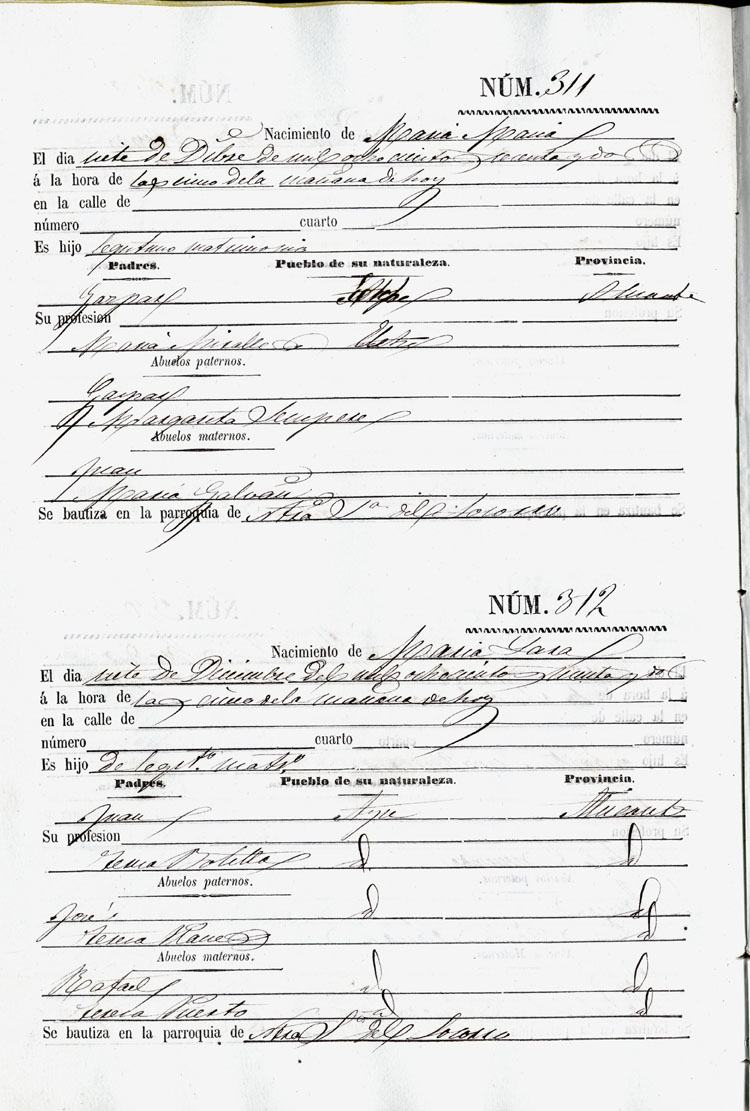 NÚM. 311
Nacimiento de Maria Maria
El dia siete de Dibre de mil ochociento secenta y do
á la hora de las cinco de la mañana de hoy
en la calle de
número cuarto
Es hijo legitimo matrimonio
Padres. Pueblo de su naturaleza. Provincia.
Gaspar Alicante
Su profesion
Maria Miralles Elche
Abuelos paternos.
Gaspar
Margarita Sempere
Abuelos maternos.
Juan
Maria Galvañ
Se bautiza en la parroquia de Ntra Sa del Socorro
NÚM. 312
Nacimiento de Maria Lara
El dia siete de Diciembre del mil ochociento secenta y do
á la hora de las cinco de la mañana de hoy
en la calle de
número cuarto
Es hijo de legitº matrº
Padres. Pueblo de su naturaleza. Provincia.
Juan Aspe Alicante
Su profesion
Teresa d d
Abuelos paternos.
José d d
Teresa d
Abuelos maternos.
Rafael d d
Teresa Puerto d d
Se bautiza en la parroquia de Ntra Sra del Socorro